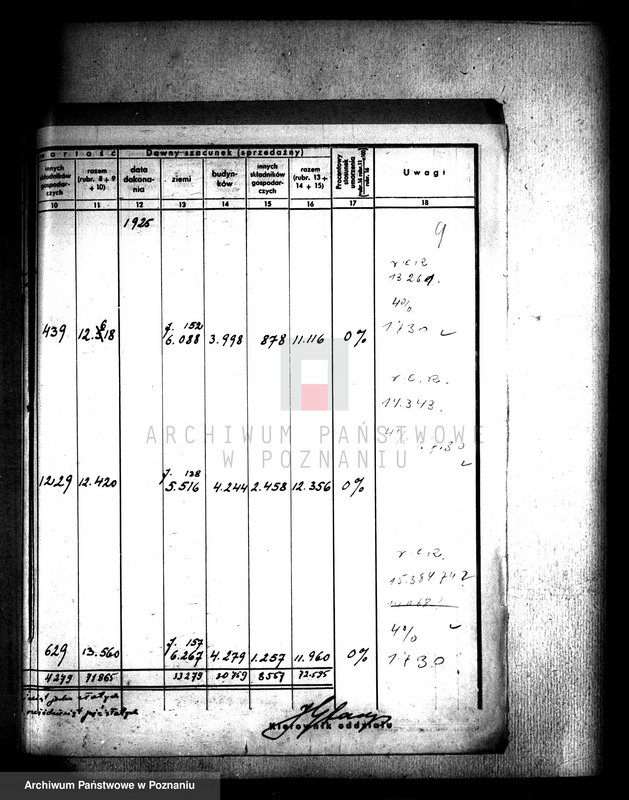 wartość Dawny szacunek (sprzedażny)
innych składników gospodar-czych
razem (rubr. 8 + 9 + 10)
data dokona-nia
ziemi
budyn-ków
innych składników gospodar-czych
razem (rubr. 13 + 14 + 15)
Procentowy stosunek umorzenia
Uwagi
10 11 12 13 14 15 16 17 18
1925
9
r. c. R.
13 261.
4%
1730
j. 152
439 12.618 6.088 3.998 878 11.116 0%
r. c. R.
14.343.
4%
j. 138
1229 12.420 5.516 4.244 2.458 12.356 0%
r. c. R.
15.384,742
4%
1730
j. 157
629 13.560 6.267 4.279 1.257 11.960 0%
4279 71865 8557
Kierownik oddziału
ARCHIWUM PAŃSTWOWE
W POZNANIU
Archiwum Państwowe w Poznaniu